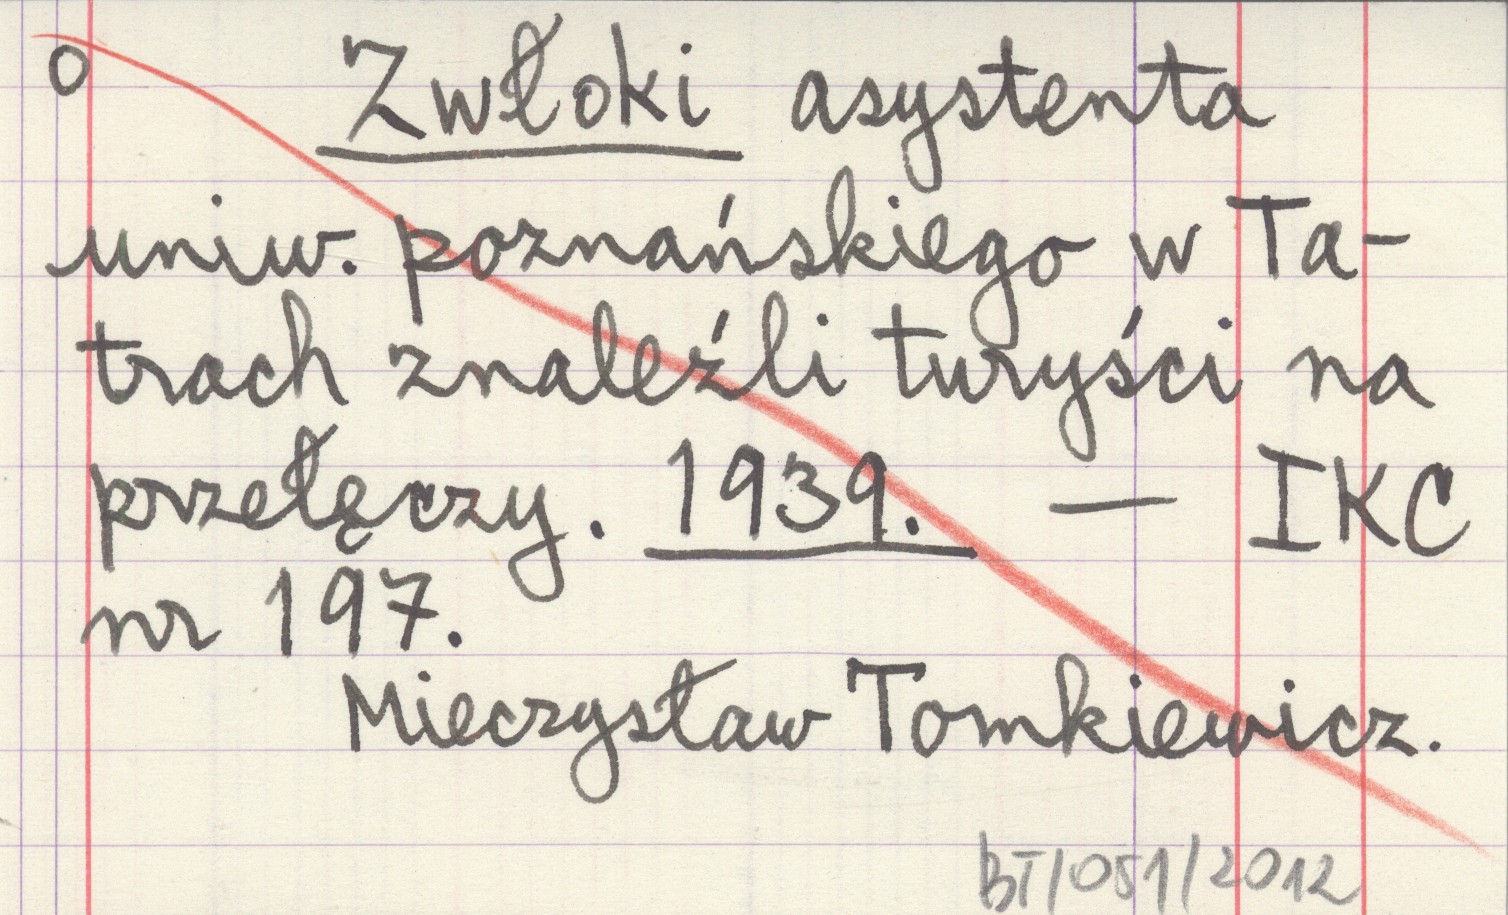 o Zwłoki asystenta
uniw. poznańskiego w Ta-
trach znaleźli turyści na
przełęczy. 1939. — IKC
nr 197.
Mieczysław Tomkiewicz.
BT/051/2012